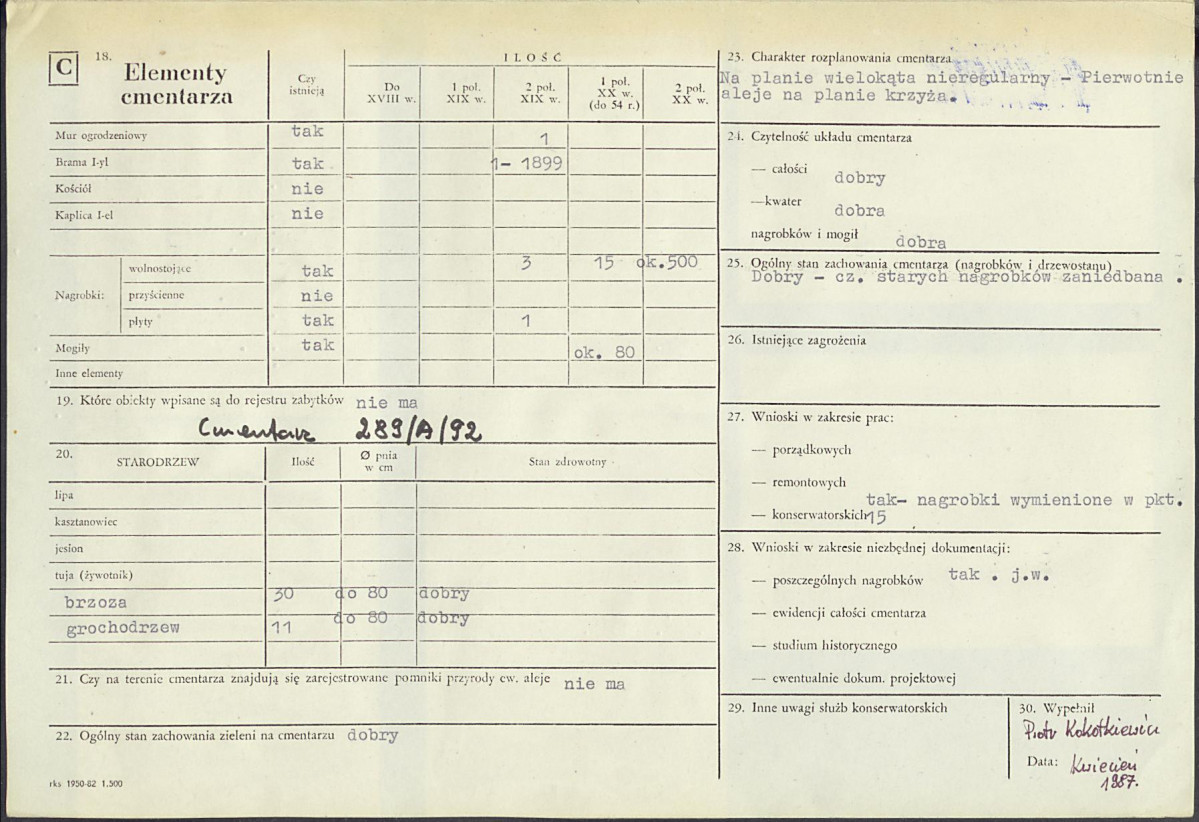 C
18. Elementy cmentarza
Czy istnieją
ILOŚĆ
Do XVIII w.
1 poł. XIX w.
2 poł. XIX w.
1 poł. XX w. (do 54 r.)
2 poł. XX w.
Mur ogrodzeniowy tak 1
Brama I-yl tak 1- 1899
Kościół nie
Kaplica I-el nie
Nagrobki:
wolnostojące tak 3 15 ok.500
przyścienne nie
płyty tak 1
Mogiły tak ok. 80
Inne elementy
19. Które obiekty wpisane są do rejestru zabytków nie ma
Cmentarz 289/A/92
20. STARODRZEW Ilość Ø pnia w cm Stan zdrowotny
lipa
kasztanowiec
jesion
tuja (żywotnik)
brzoza 30 do 80 dobry
grochodrzew 11 do 80 dobry
21. Czy na terenie cmentarza znajdują się zarejestrowane pomniki przyrody ew. aleje nie ma
22. Ogólny stan zachowania zieleni na cmentarzu dobry
rks 1950-82 1.500
23. Charakter rozplanowania cmentarza
Na planie wielokąta nieregularny - Pierwotnie
aleje na planie krzyża.
24. Czytelność układu cmentarza
— całości dobry
—kwater dobra
nagrobków i mogił dobra
25. Ogólny stan zachowania cmentarza (nagrobków i drzewostanu)
Dobry - cz. starych nagrobków zaniedbana .
26. Istniejące zagrożenia
27. Wnioski w zakresie prac:
— porządkowych
— remontowych
tak- nagrobki wymienione w pkt.
— konserwatorskich 15
28. Wnioski w zakresie niezbędnej dokumentacji:
— poszczególnych nagrobków tak . j.w.
— ewidencji całości cmentarza
— studium historycznego
— ewentualnie dokum. projektowej
29. Inne uwagi służb konserwatorskich
30. Wypełnił
Piotr Kokotkiewicz
Data: Kwiecień
1987.